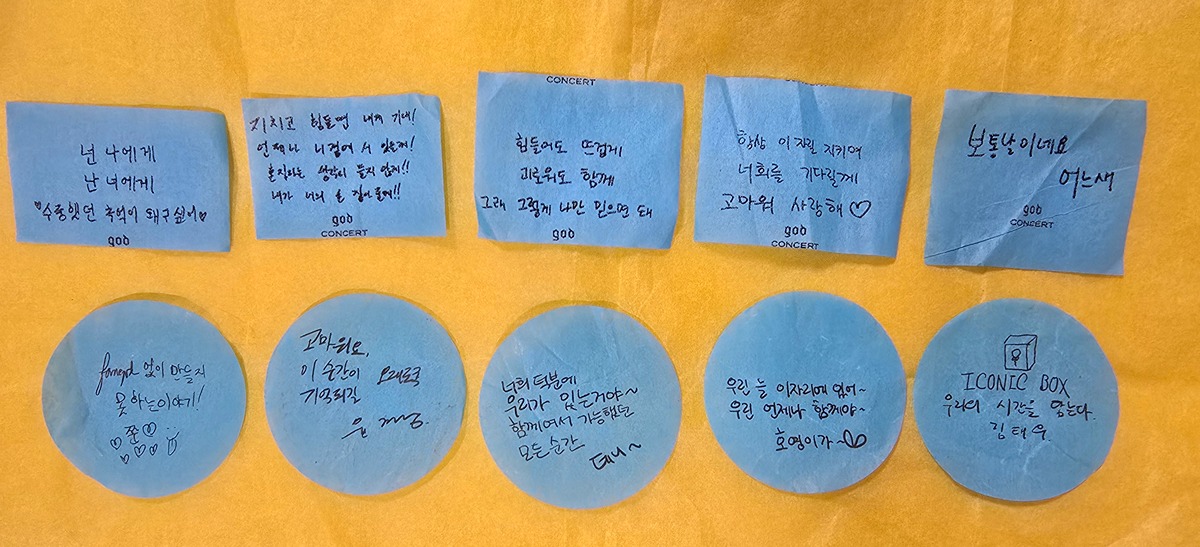 넌 나에게
난 너에게
수놓았던 추억이 돼구싶어
god
지치고 힘들면 내게 기대!
언제나 니 곁에 서 있을게!
혼자라는 생각이 들지 않게!!
내가 너의 손 잡아줄게!!
god
CONCERT
CONCERT
힘들어도 뜨겁게
괴로워도 함께
그래 그렇게 나만 믿으면 돼
god
항상 이 자릴 지키며
너희를 기다릴게
고마워 사랑해♡
god
CONCERT
보통날이네요
어느새
god
CONCERT
fangod 없이 만들지
못하는 이야기!
쭌♡
고마워요,
이 순간이 오래도록
기억되길
윤계상.
너희 덕분에
우리가 있는거야~
함께여서 가능했던
모든 순간
데니~
우린 늘 이자리에 있어~
우린 언제나 함께야~
호영이가~♡
ICONIC BOX
우리의 시간을 담는다.
김태우.